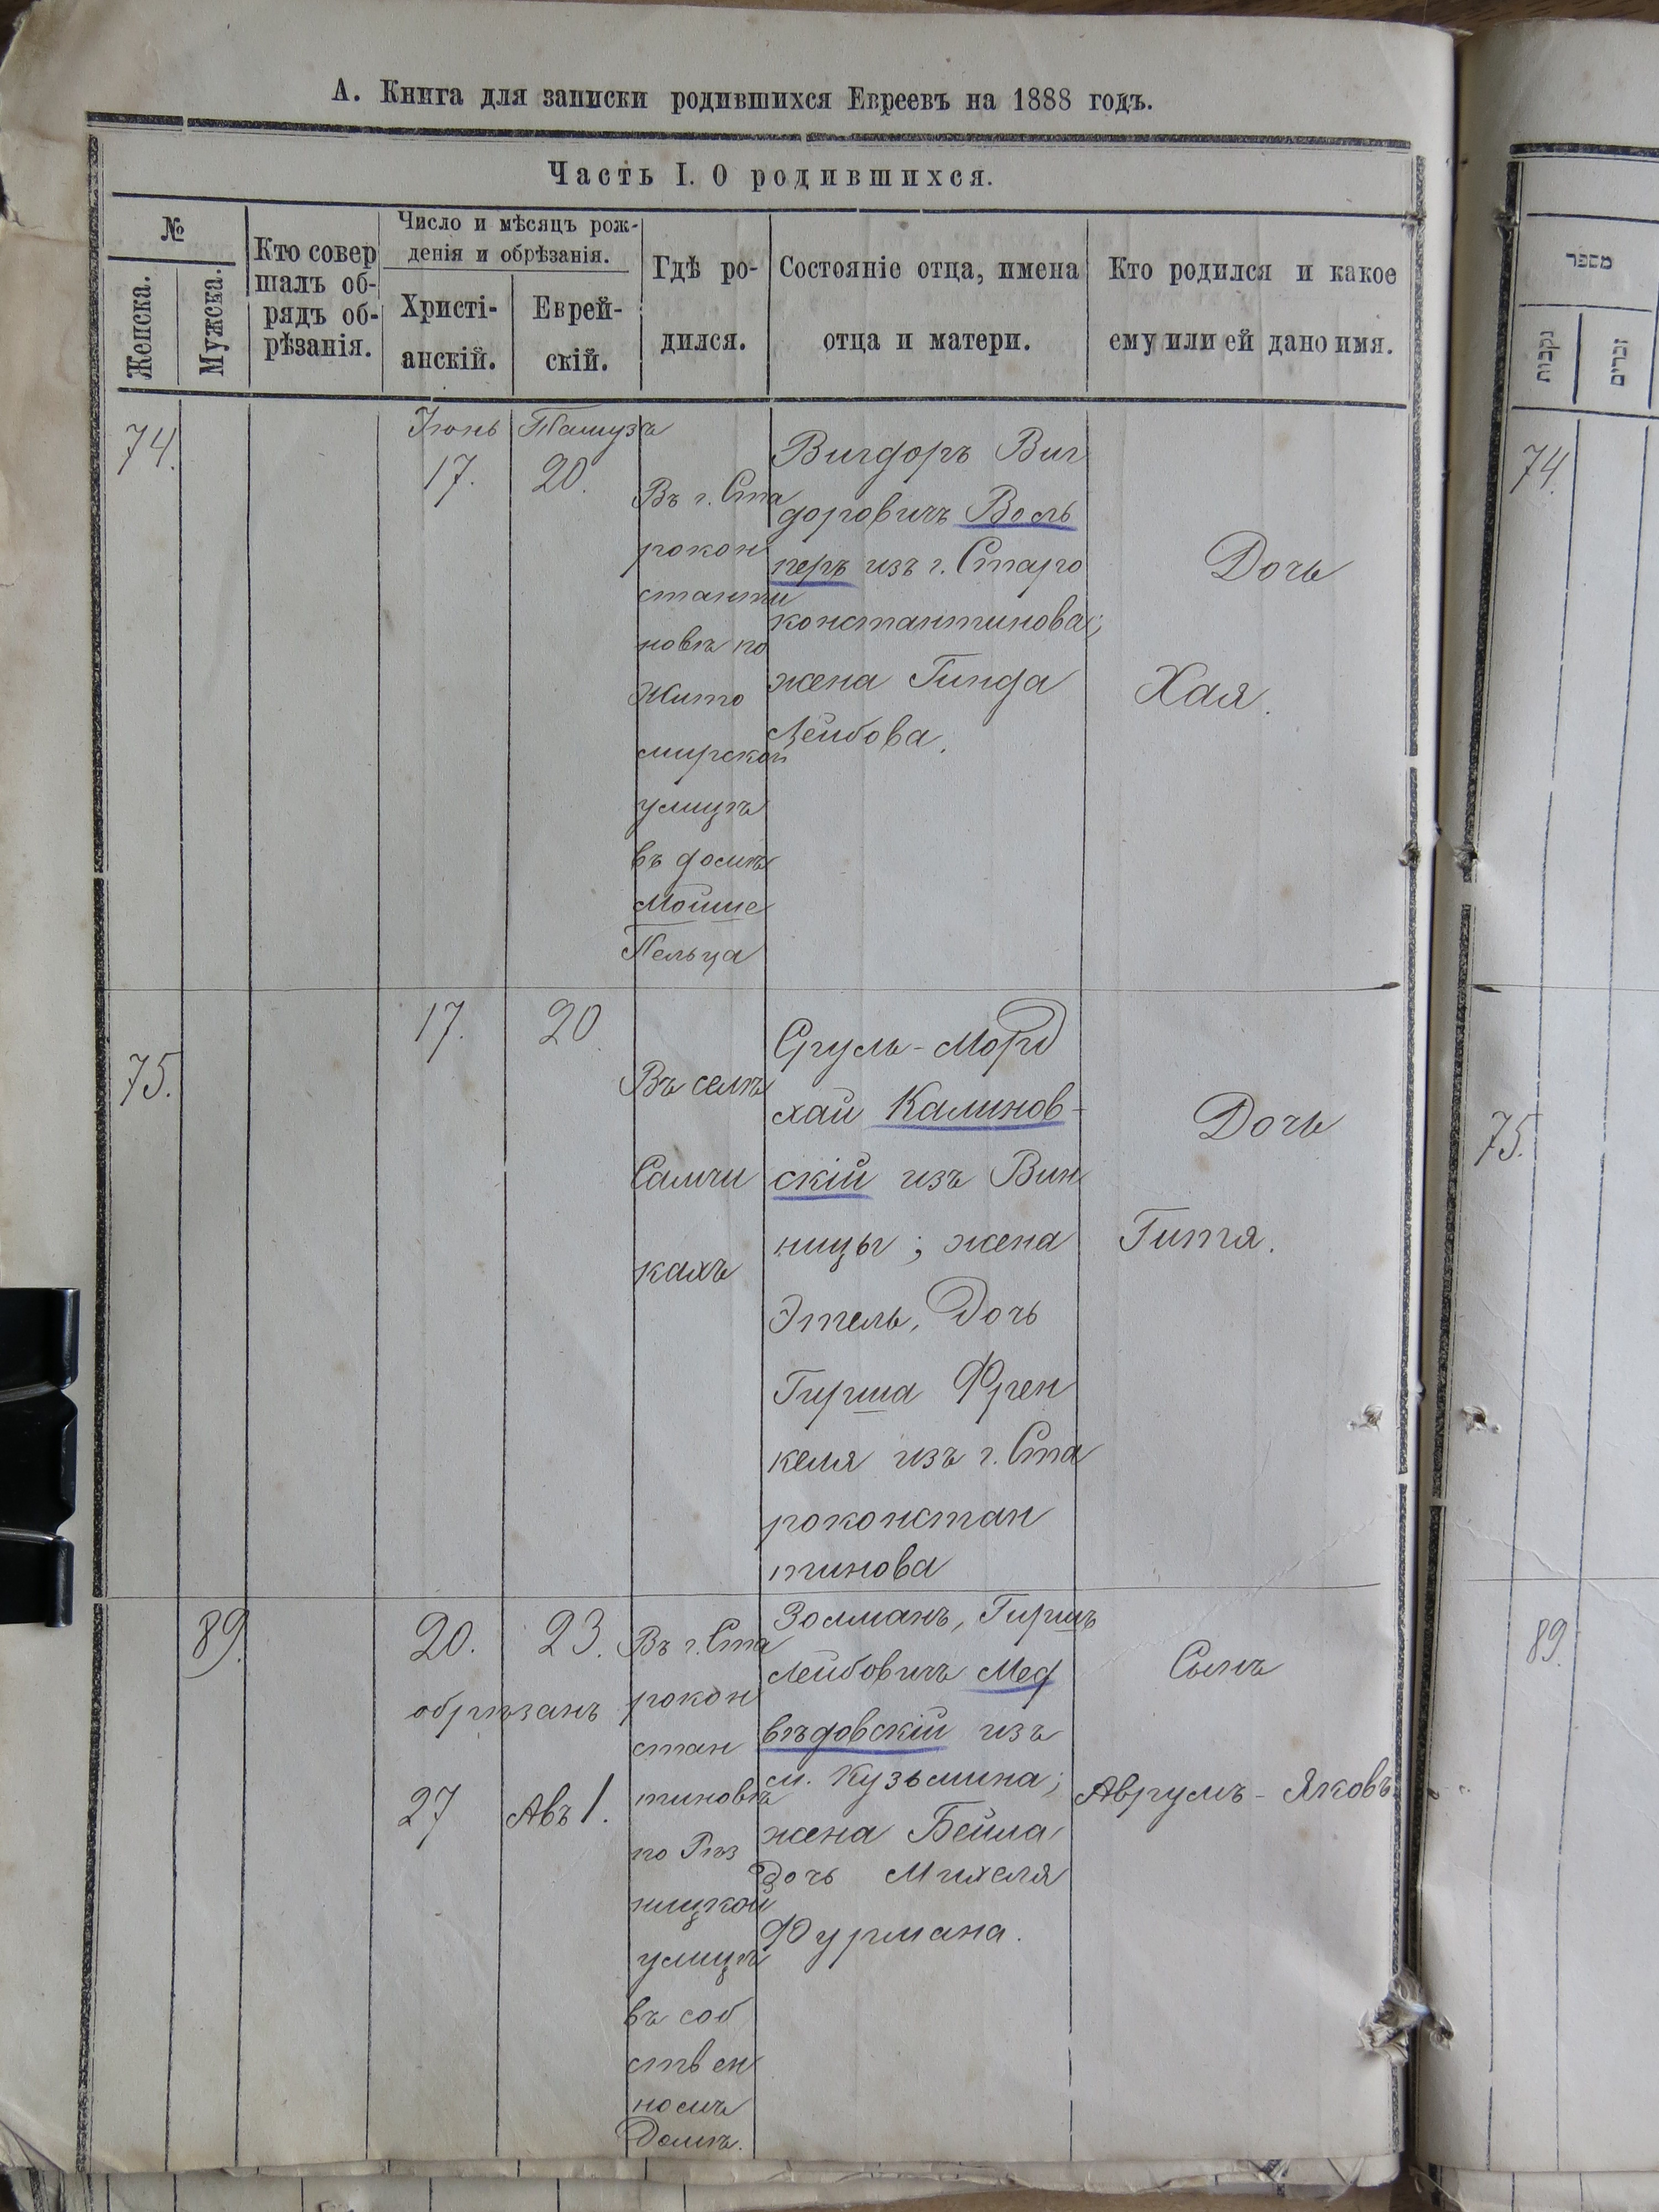 А. Книга для записки родившихся Евреевъ на 1888 годъ.
Часть I. О родившихся.
№
Женска.
Мужска.
Кто совер
шалъ об-
рядъ об-
рѣзанія.
Число и мѣсяцъ рож-
денія и обрѣзанія.
Христі-
анскій.
Еврей-
скій.
Гдѣ ро-
дился.
Состояніе отца, имена
отца и матери.
Кто родился и какое
ему или ей дано имя.
74.
Іюнь
17.
Тамузъ
20.
Въ г. Ста
рокон
станти
новѣ по
Жито
мирской
улицѣ
въ домѣ
Мойше
Пельца
Вигдоръ Виг
доровичъ Воль
перъ изъ г. Старо
константинова;
жена Гинда
Лейбова.
Дочь
Хая.
75.
17.
20
Въ селѣ
Самчи
кахъ
Сруль-Морд
хай Калинов-
скій изъ Вин
ницы; жена
Этель, Дочь
Гирша Френ
келя изъ г. Ста
роконстан
тинова
Дочь
Гитя.
89.
20.
23.
обрѣзанъ
27
Авъ 1.
Въ г. Ста
рокон
стан
тиновѣ
по Рѣз
ницкой
улицѣ
въ соб
ствен
номъ
Домѣ.
Золманъ, Гиршъ
Лейбовичъ Мед
вѣдовскій изъ
м. Кузьмина;
жена Бейла
дочь Михеля
Фурмана.
Сынъ
Аврумъ-Яковъ
מספר
נקבות
זכרים
74.
75.
89.